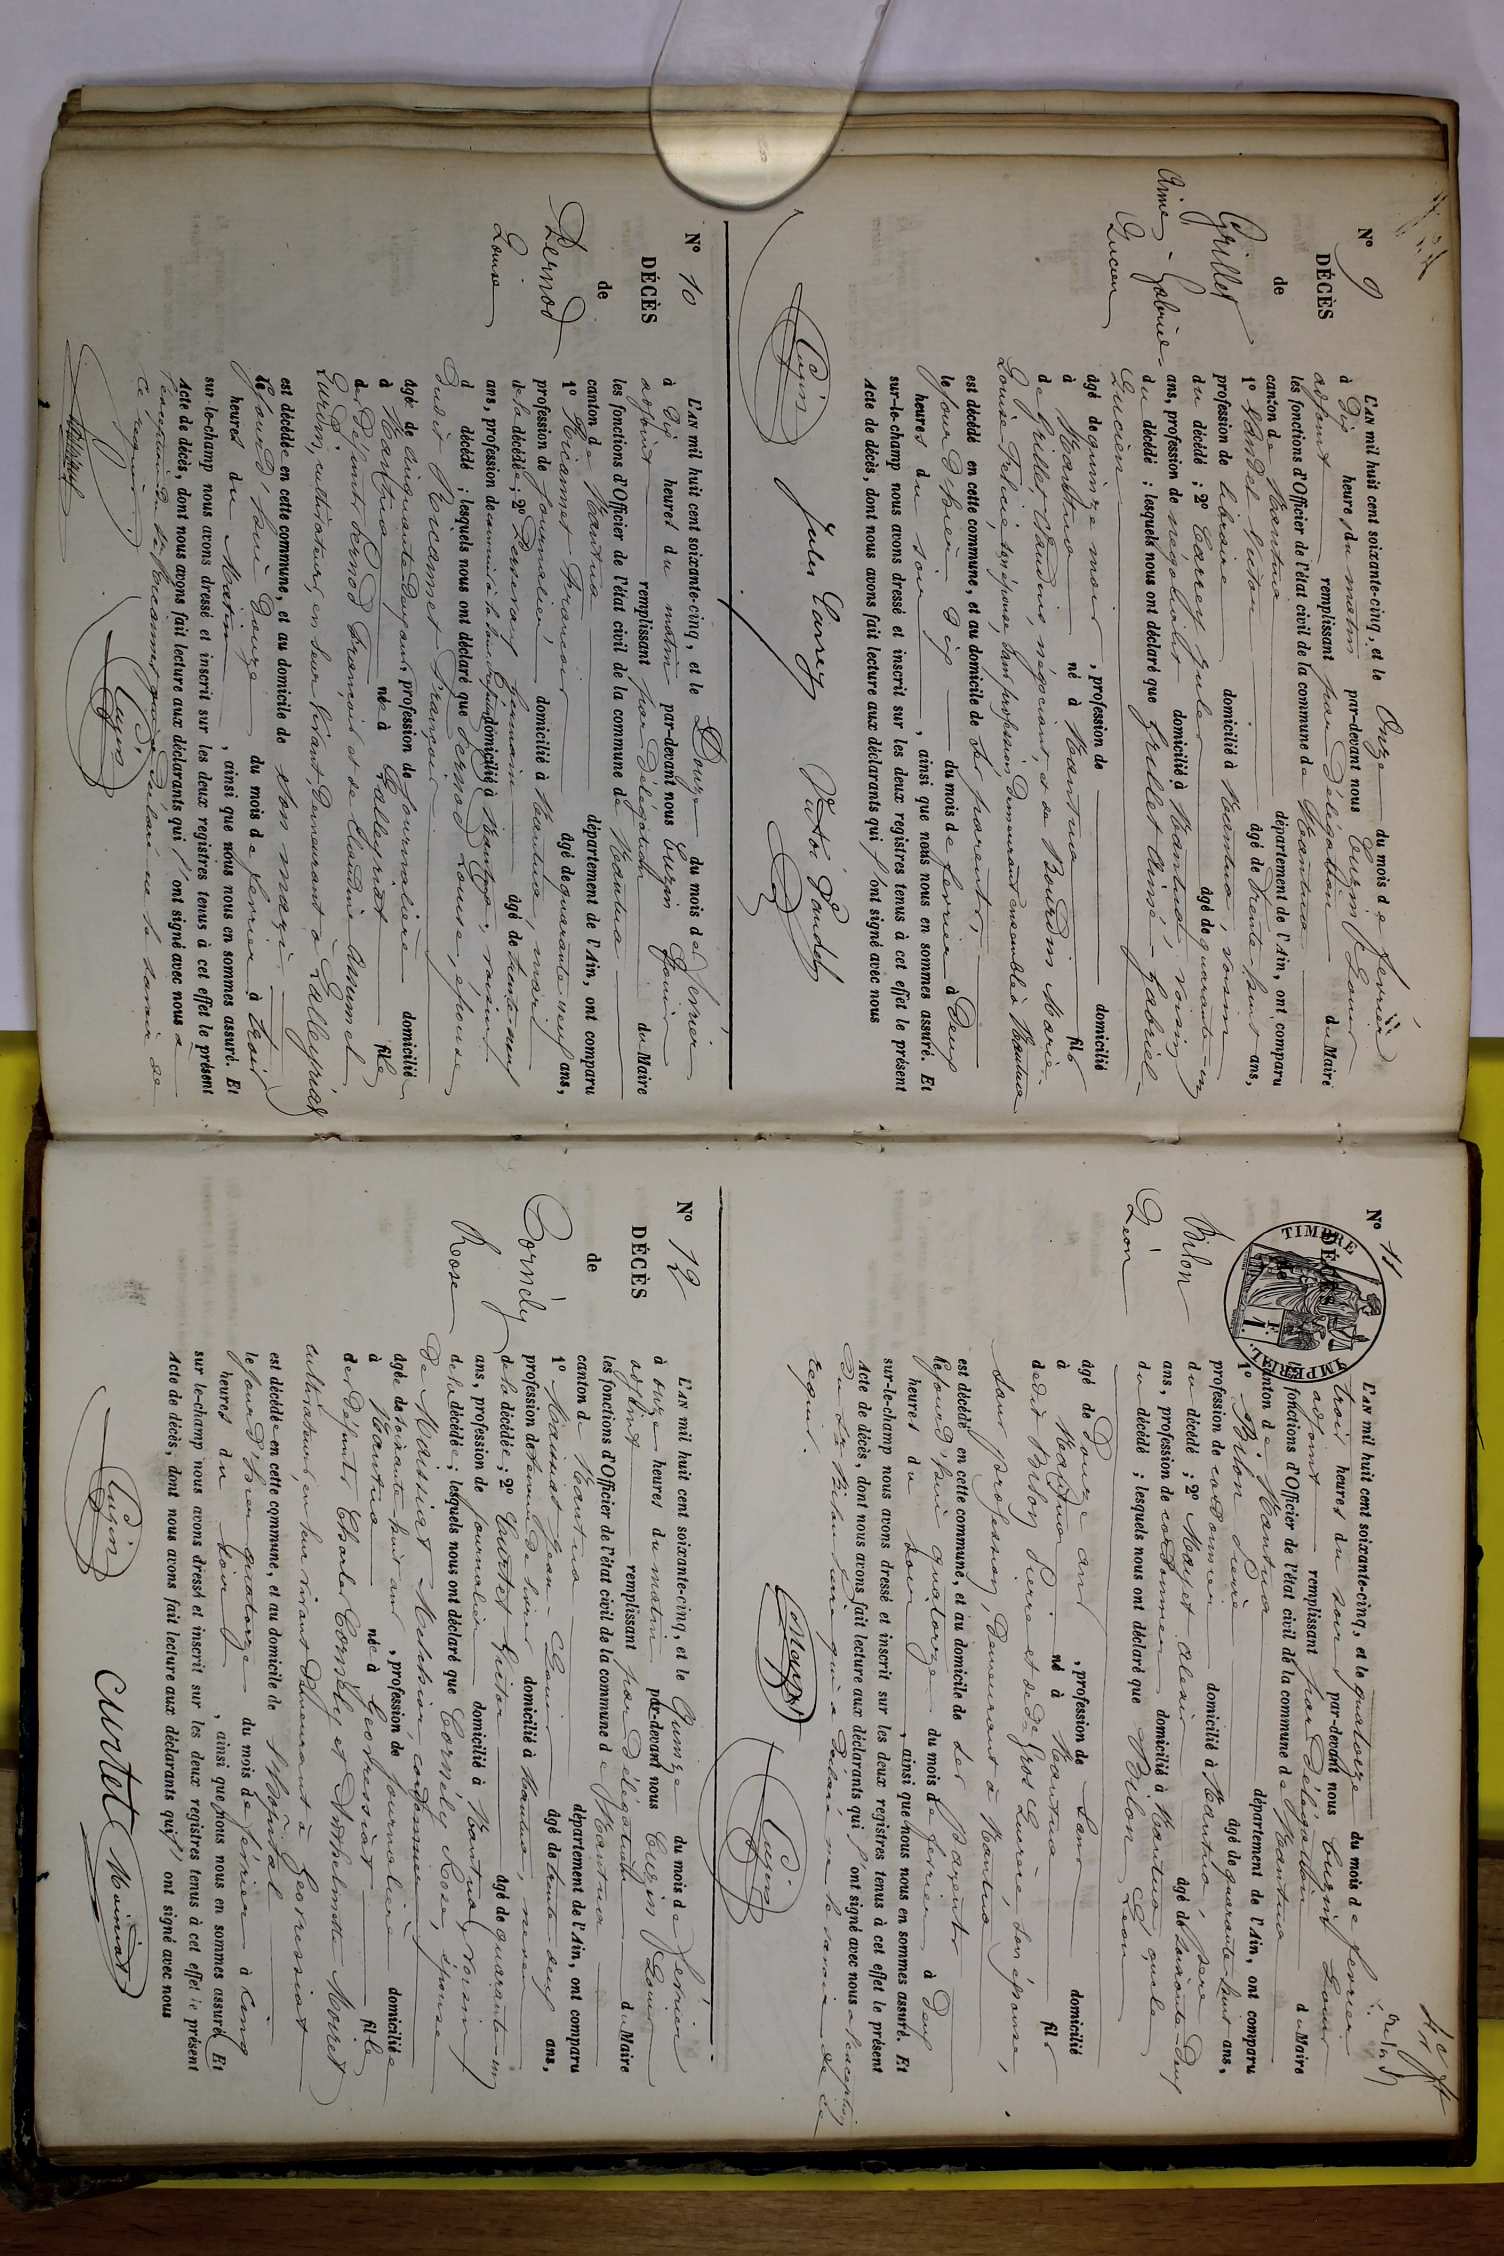 N° 9
DÉCÈS
de
Grillet
Aimé-Gabriel-
Lucien
L'AN mil huit cent soixante-cinq, et le Onze du mois de février
à dix heures du matin par-devant nous Cuzin Louis
adjoint remplissant par délégation du Maire
les fonctions d'Officier de l'état civil de la commune de Nantua
canton de Nantua département de l'Ain, ont comparu
1° Vandel Victor âgé de trente-huit ans,
profession de libraire domicilié à Nantua, voisin
du décédé ; 2° Carrey Jules âgé de quarante-un
ans, profession de négociant domicilié à Nantua, voisin
du décédé ; lesquels nous ont déclaré que Grillet Aimé-Gabriel-
Lucien
âgé de quinze mois , profession de domicilié
à Nantua né à Nantua fils
de Grillet Claudius, négociant, et de Bourdin Marie-
Louise-Félicie, son épouse, sans profession, demeurant ensemble à Nantua
est décédé en cette commune, et au domicile de ses parents,
le jour d'hier dix du mois de février à deux
heures du soir , ainsi que nous nous en sommes assuré. Et
sur-le-champ nous avons dressé et inscrit sur les deux registres tenus à cet effet le présent
Acte de décès, dont nous avons fait lecture aux déclarants qui l'ont signé avec nous
Cuzin Jules Carrey Victor Vandel
N° 10
DÉCÈS
de
Pernod
Louise
L'AN mil huit cent soixante-cinq, et le Douze du mois de février
à dix heures du matin par-devant nous Cuzin Louis
adjoint remplissant par délégation du Maire
les fonctions d'Officier de l'état civil de la commune de Nantua
canton de Nantua département de l'Ain, ont comparu
1° Ricannet François âgé de quarante-neuf ans,
profession de journalier domicilié à Nantua, mari
de la décédée ; 2° Germain âgé de trente-neuf
ans, profession de domicilié à Nantua, voisin
dudit Ricannet François
d décédé ; lesquels nous ont déclaré que Pernod Louise, épouse
âgée de cinquante-deux ans, profession de journalière domiciliée
à Nantua née à Lalleyriat fille
de défunts Pernod François et de Claudine Humel
, cultivateurs, en leur vivant demeurant à Lalleyriat
est décédée en cette commune, et au domicile de son mari
le jourd'hui douze du mois de février à trois
heures du matin , ainsi que nous nous en sommes assuré. Et
sur-le-champ nous avons dressé et inscrit sur les deux registres tenus à cet effet le présent
Acte de décès, dont nous avons fait lecture aux déclarants qui l'ont signé avec nous à
l'exception de Ricannet qui a déclaré ne le savoir de
ce requis.
Cuzin
N° 11
DÉCÈS
TIMBRE IMPERIAL
Bilon
Léon
L'AN mil huit cent soixante-cinq, et le quatorze du mois de février
à trois heures du soir par-devant nous Cuzin Louis
adjoint remplissant par délégation du Maire
les fonctions d'Officier de l'état civil de la commune de Nantua
canton de Nantua département de l'Ain, ont comparu
1° Bilon Pierre âgé de quarante-huit ans,
profession de cordonnier domicilié à Nantua, père
du décédé ; 2° Mayet Alexis âgé de soixante-deux
ans, profession de cordonnier domicilié à Nantua,
du décédé ; lesquels nous ont déclaré que Bilon Léon
âgé de douze ans , profession de sans domicilié
à Nantua né à Nantua fils
dudit Bilon Pierre et de de Gros Lucrèce, son épouse,
sans profession, demeurant à Nantua
est décédé en cette commune, et au domicile de ses parents
le jourd'hui quatorze du mois de février à deux
heures du soir , ainsi que nous nous en sommes assuré. Et
sur-le-champ nous avons dressé et inscrit sur les deux registres tenus à cet effet le présent
Acte de décès, dont nous avons fait lecture aux déclarants qui l'ont signé avec nous à l'exception
du Sr Bilon père qui a déclaré ne le savoir de ce
requis.
Mayet Cuzin
N° 12
DÉCÈS
de
Cornély
Rose
L'AN mil huit cent soixante-cinq, et le Quinze du mois de février
à onze heures du matin par-devant nous Cuzin Louis
adjoint remplissant par délégation du Maire
les fonctions d'Officier de l'état civil de la commune de Nantua
canton de Nantua département de l'Ain, ont comparu
1° Maissiat Jean-Louis âgé de trente-deux ans,
profession de domicilié à Nantua, neveu
de la décédée ; 2° Curtet Victor âgé de quarante-un
ans, profession de journalier domicilié à Nantua, voisin
de la décédée ; lesquels nous ont déclaré que Cornély Rose, épouse
de Maissiat Melchior, cordonnier
âgée de soixante-huit ans , profession de journalière domiciliée
à Nantua née à Geovressiat fille
de défunts Charles Cornély et Anthelmette Moiret
cultivateurs, en leur vivant demeurant à Geovressiat
est décédée en cette commune, et au domicile de l'Hôpital
le jour d'hier quatorze du mois de février à cinq
heures du soir , ainsi que nous nous en sommes assuré. Et
sur-le-champ nous avons dressé et inscrit sur les deux registres tenus à cet effet le présent
Acte de décès, dont nous avons fait lecture aux déclarants qui l'ont signé avec nous
Cuzin Curtet Maissiat